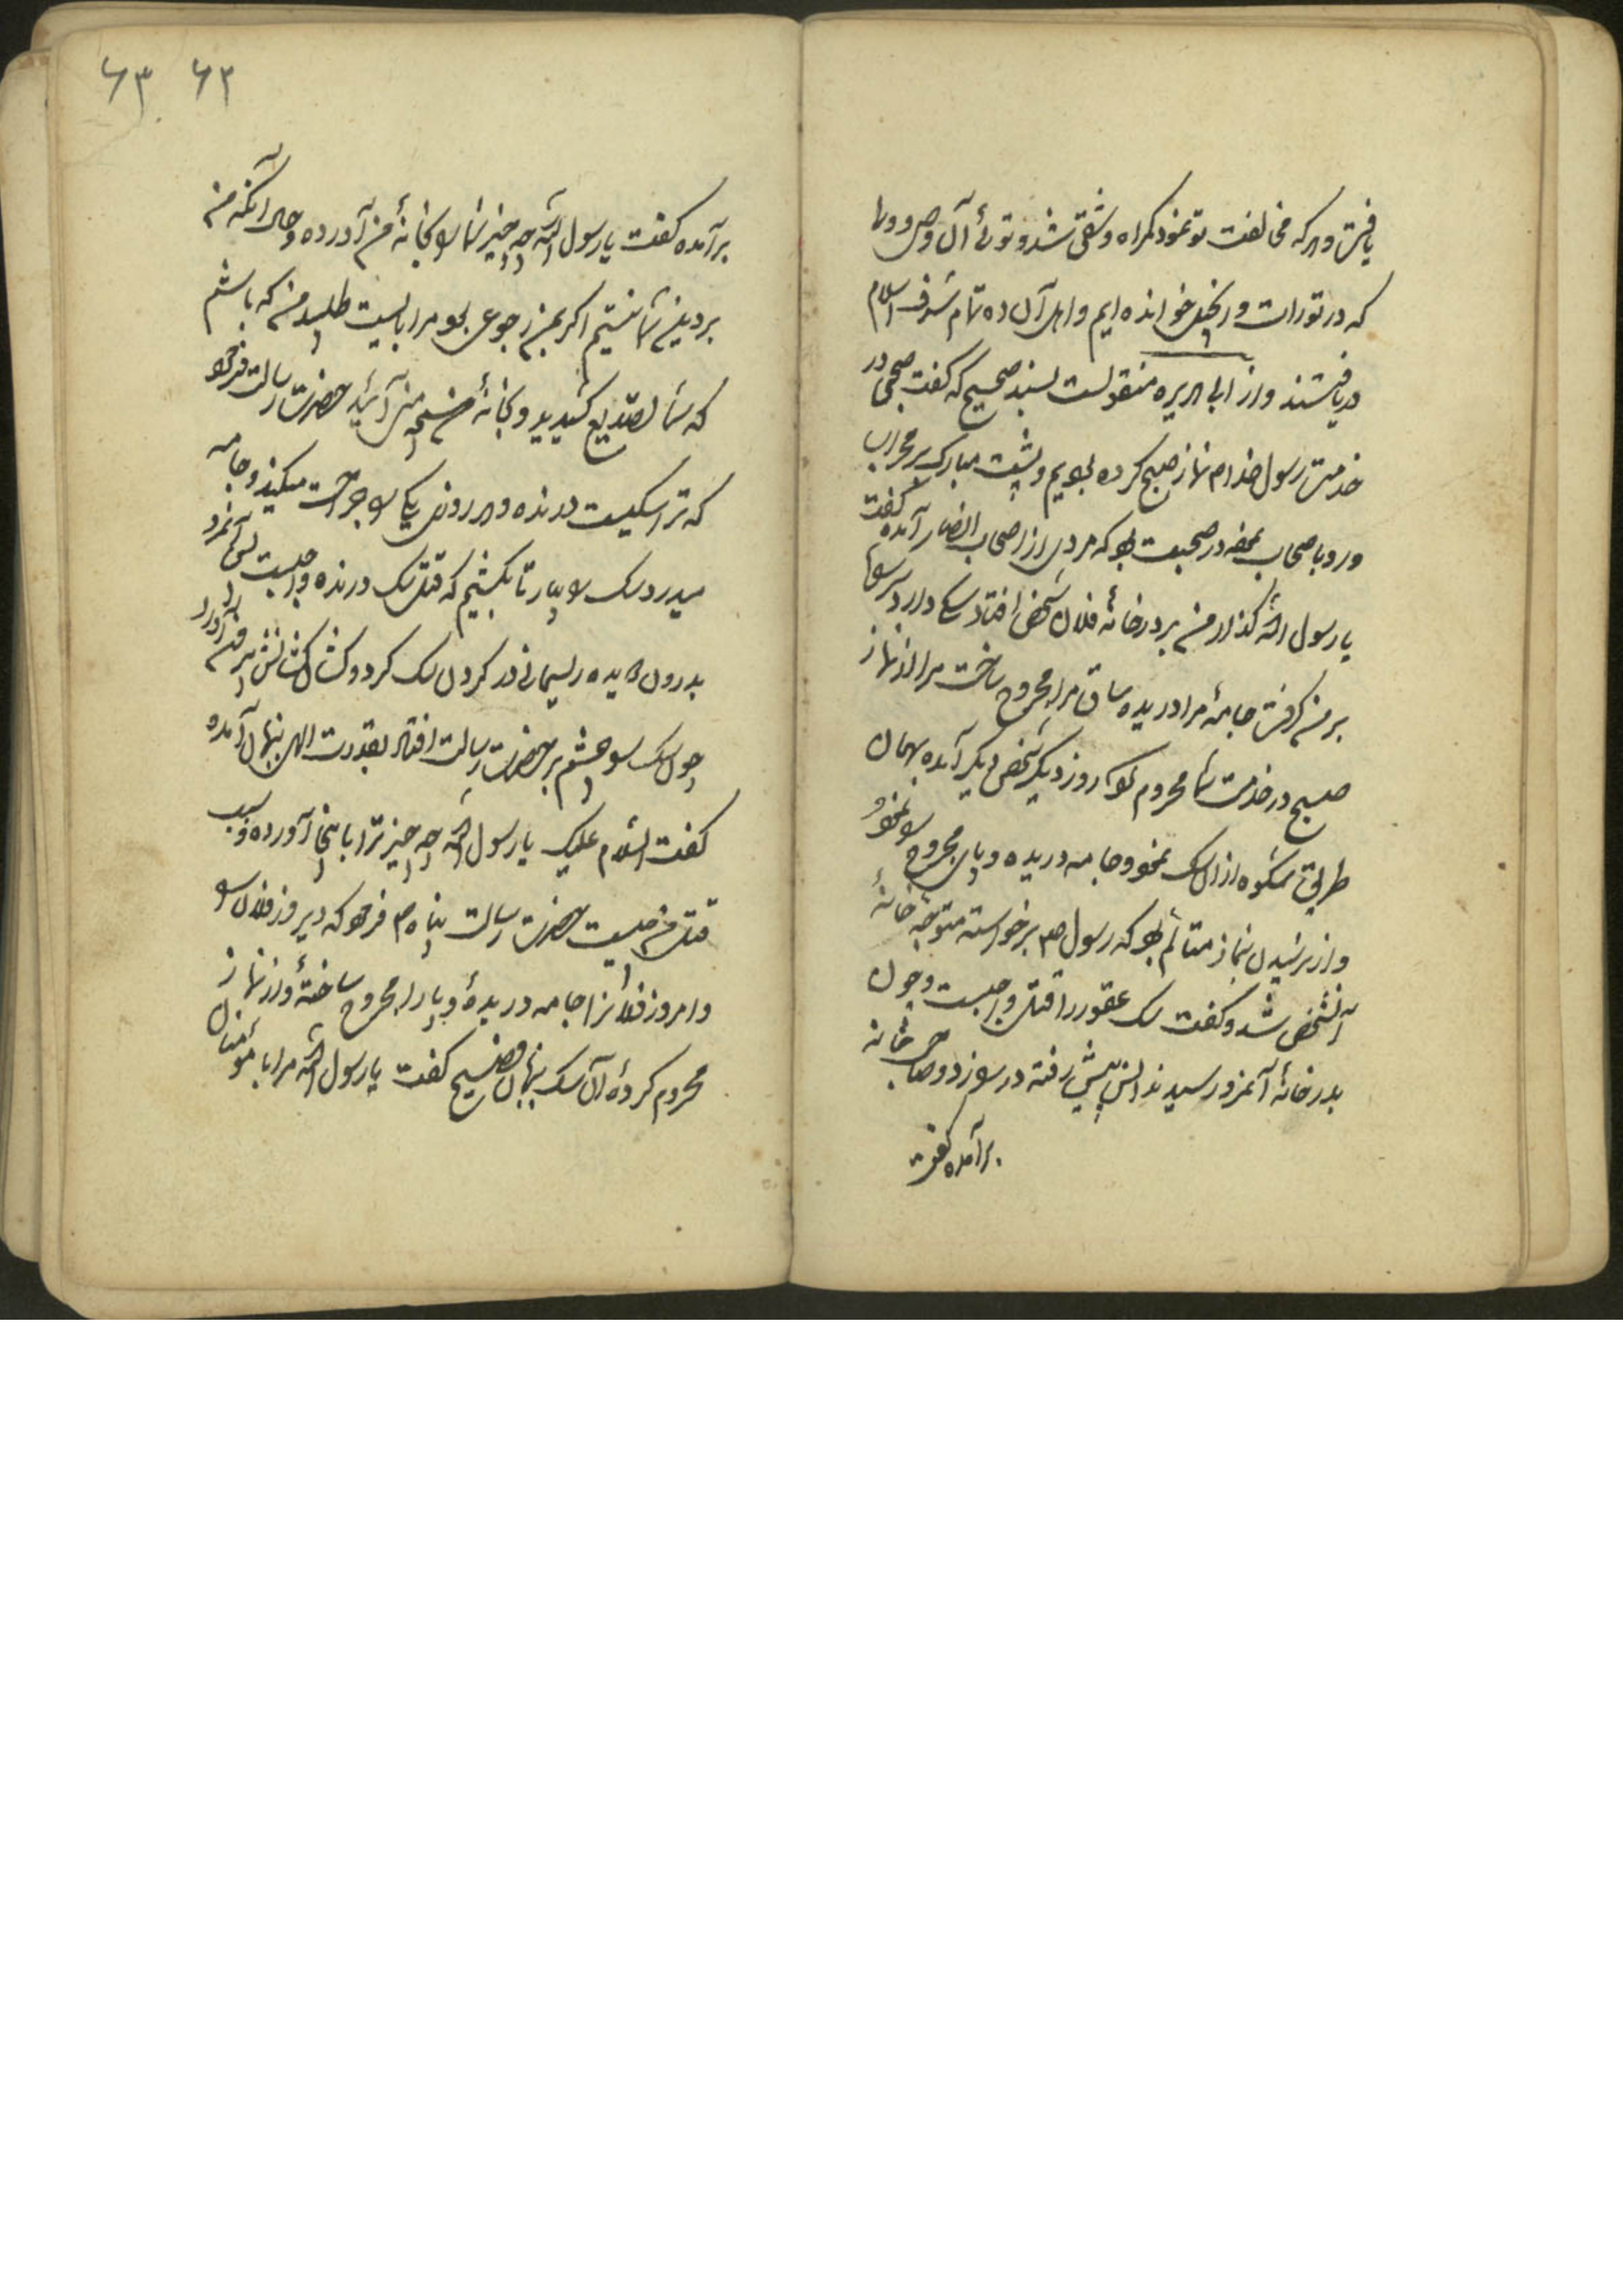 یافت و هر که مخالفت تو نمود گمراه و شقی شد و توئی آن وصی
که در تورات و انجیل خوانده ایم و اهل آن ده تمام شرف اسلام
دریافتند و از ابی هریره منقولست بسند صحیح که گفت صبحی در
خدمت رسول خدا م نماز صبح کرده بودیم و پشت مبارک بر محراب
و رو باصحاب نموده در صحبت بود که مردی از اصحاب انصار آمده گفت
یا رسول الله گذار من بر در خانه فلان شخص افتاد سکی دارد
بر من گرفت جامه مرا دریده ساق مرا مجروح ساخت مرا از نماز
صبح در خدمت شما محروم کرد روز دیگر شخص دیگر آمده بهمان
طریق شکوه از ان سک نمود و جامه دریده و پای مجروح را نمود
و از نرسیدن بنماز متالم بود که رسول ص برخواسته متوجه خانه
آنشخص شد و گفت سک عقور را قتل واجبست و چون
بدر خانه آنمرد رسیدند انس پیش رفته در را زد و صاحب خانه
برآمده گفت
۶۲ ۶۳
برآمده گفت یا رسول الله چه چیز شما را بخانه من آورده و حال آنکه من
بر دین شما نیستم اگر بمن رجوعی بود مرا بایست طلبید من که باشم
که شما تصدیع کشیدید و بخانه من آئید حضرت رسالت فرمود
که ترا سکیست درنده و هر روز یکی را جراحت میکند و جامه
میدرد سک را بیار تا بکشیم که قتل سک درنده واجبست پس آنمرد
بدرون دویده ریسمانی در کردن سک کرد و کشان کشانش بیرون آورد
چون سک را چشم بر حضرت رسالت افتاد بقدرت الهی بزبان آمده
گفت السلام علیک یا رسول الله چه چیز ترا باینجا آورده و سبب
قتل من چیست حضرت رسالت پناه ص فرمود که دیروز فلان را
و امروز فلانرا جامه دریدهٔ و پا را مجروح ساختهٔ و از نماز
محروم کردهٔ آن سک بزبان فصیح گفت یا رسول الله مرا با مومنان